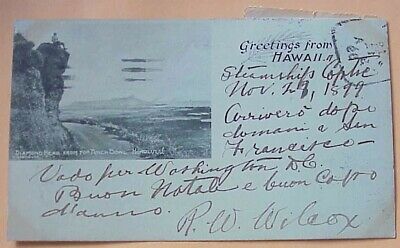 Greetings from
HAWAII.
Steamship Coptic
Nov. 29, 1899
Arriverò dopo
domani a San
Francisco-
DIAMOND HEAD FROM TOP PUNCH BOWL, HONOLULU
Vado per Washington, D.C.
Buon Natale e buon Capo
d'anno.
R. W. Wilcox